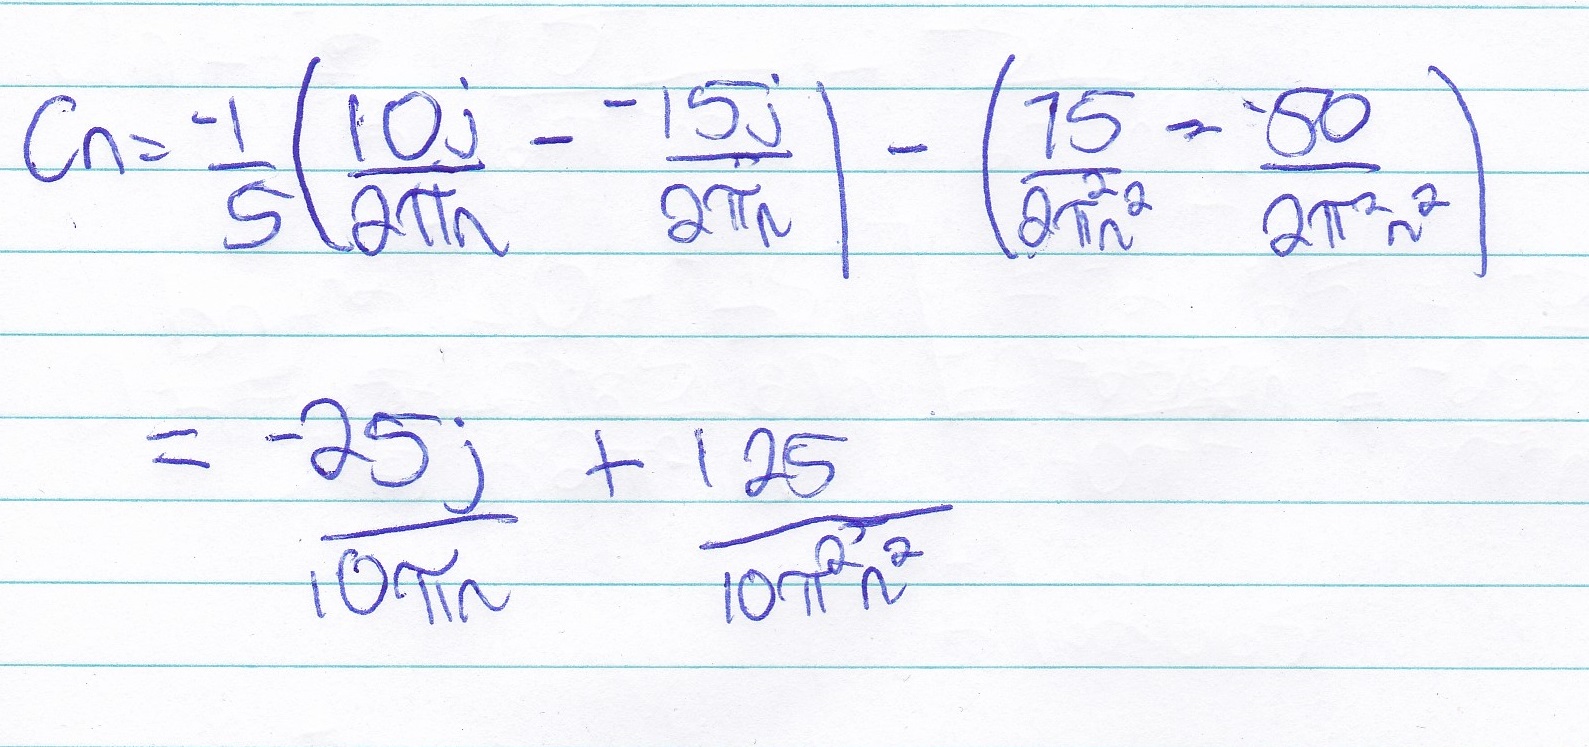 Cn = -1/5 (10j/2πn - -15j/2πn) - (75/2π²n² - -50/2π²n²)
= -25j/10πn + 125/10π²n²